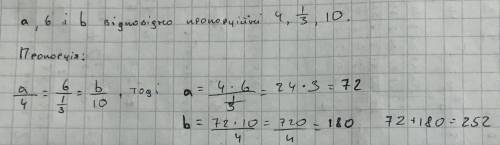 a, 6 і b відповідно пропорційні 4, 1/3, 10.
Пропорція:
a/4 = 6/(1/3) = b/10, тоді a = (4·6)/(1/3) = 24·3 = 72
b = (72·10)/4 = 720/4 = 180 72+180=252